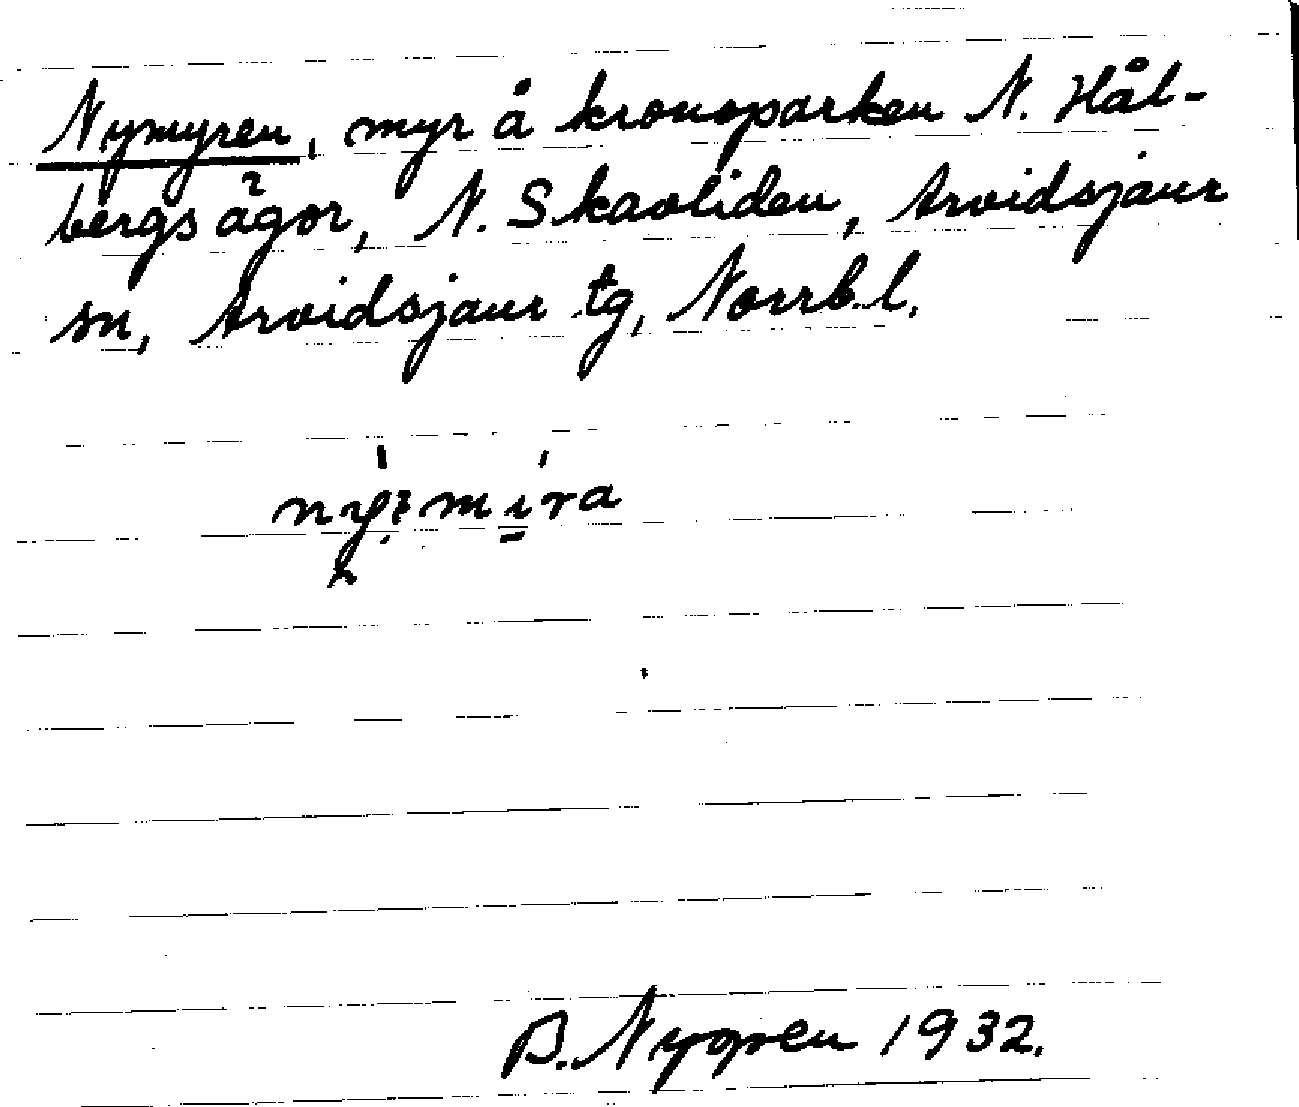 Nymyren, myr å kronoparken N. Hål-
bergs ägor, N. Skavliden, Arvidsjaur
sn, Arvidsjaur tg, Norrb.l.
B. Nygren 1932.